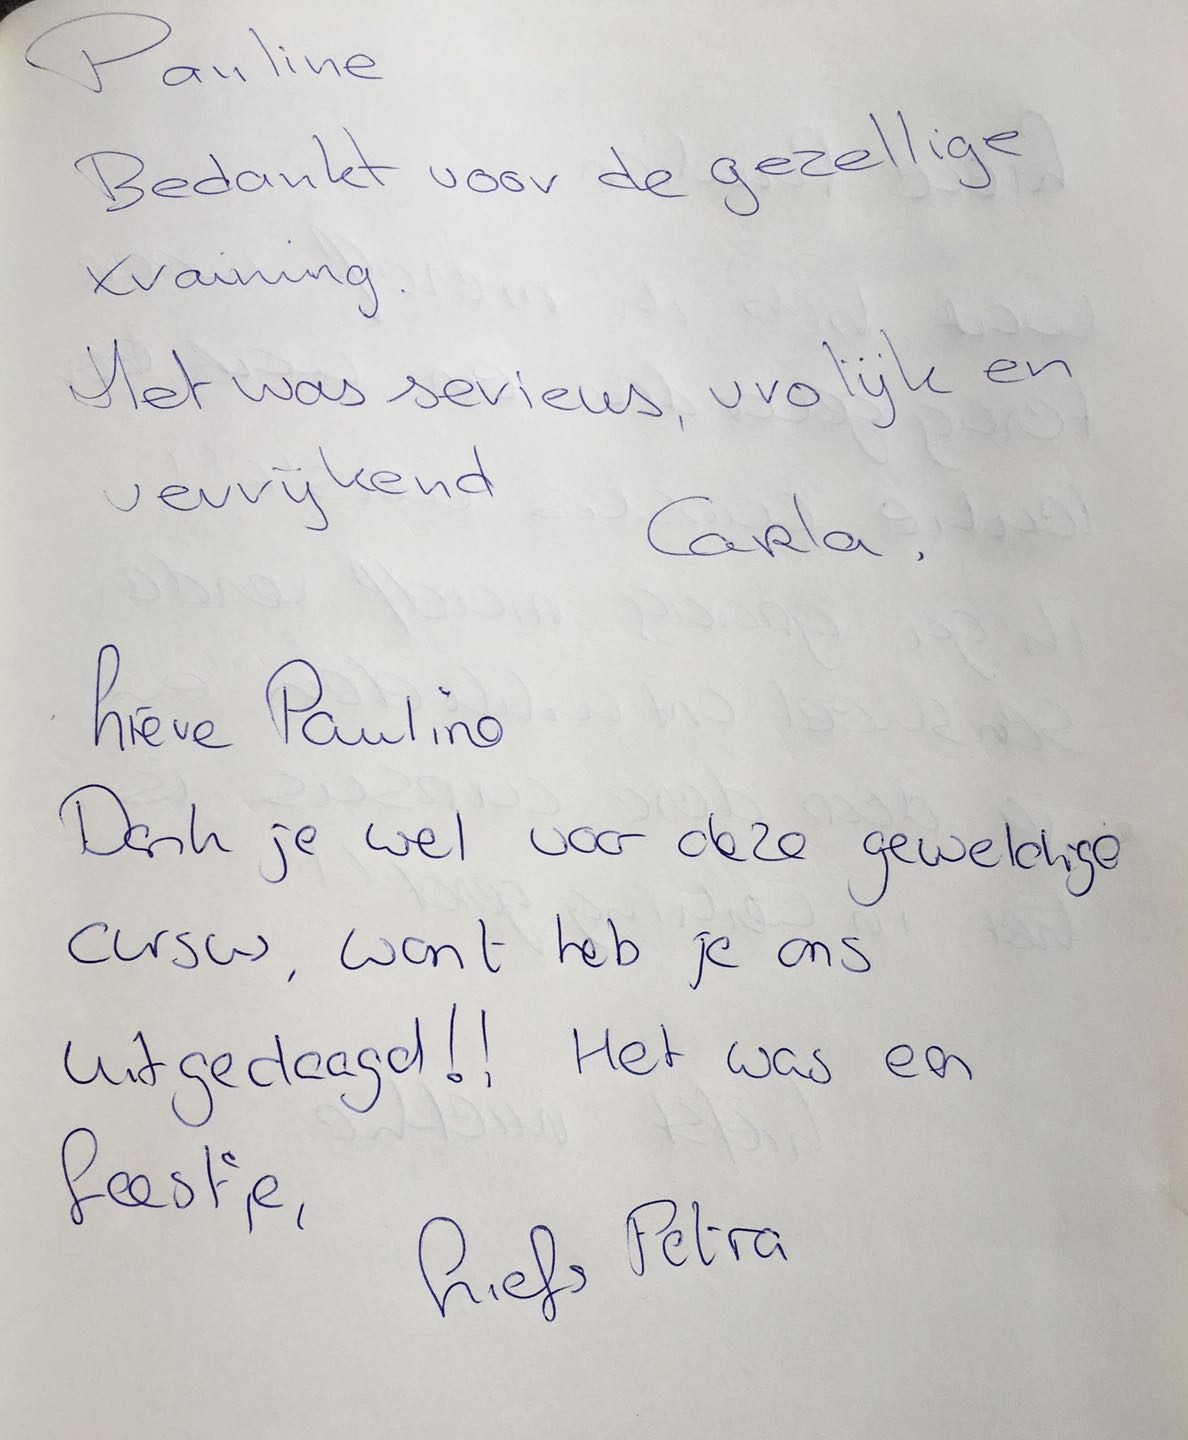 Pauline
Bedankt voor de gezellige
training.
Het was serieus, vrolijk en
verrijkend
Carla.
Lieve Pauline
Dank je wel voor deze geweldige
cursus, want heb je ons
uitgedaagd!! Het was een
feestje,
Liefs Petra